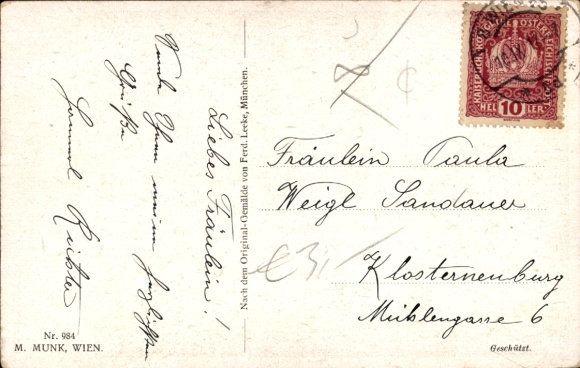 Liebes Fräulein!
Ihnen meine herzlichsten
Grüße
Nach dem Original-Gemälde von Ferd. Leeke, München.
Nr. 984
M. MUNK, WIEN.
KAISERLICH KÖNIGLICHE ÖSTERREICHISCHE POST
HELLER 10
WIEN
Fräulein Paula
Weigl Sandauer
Klosterneuburg
Mühlengasse 6
Geschützt.